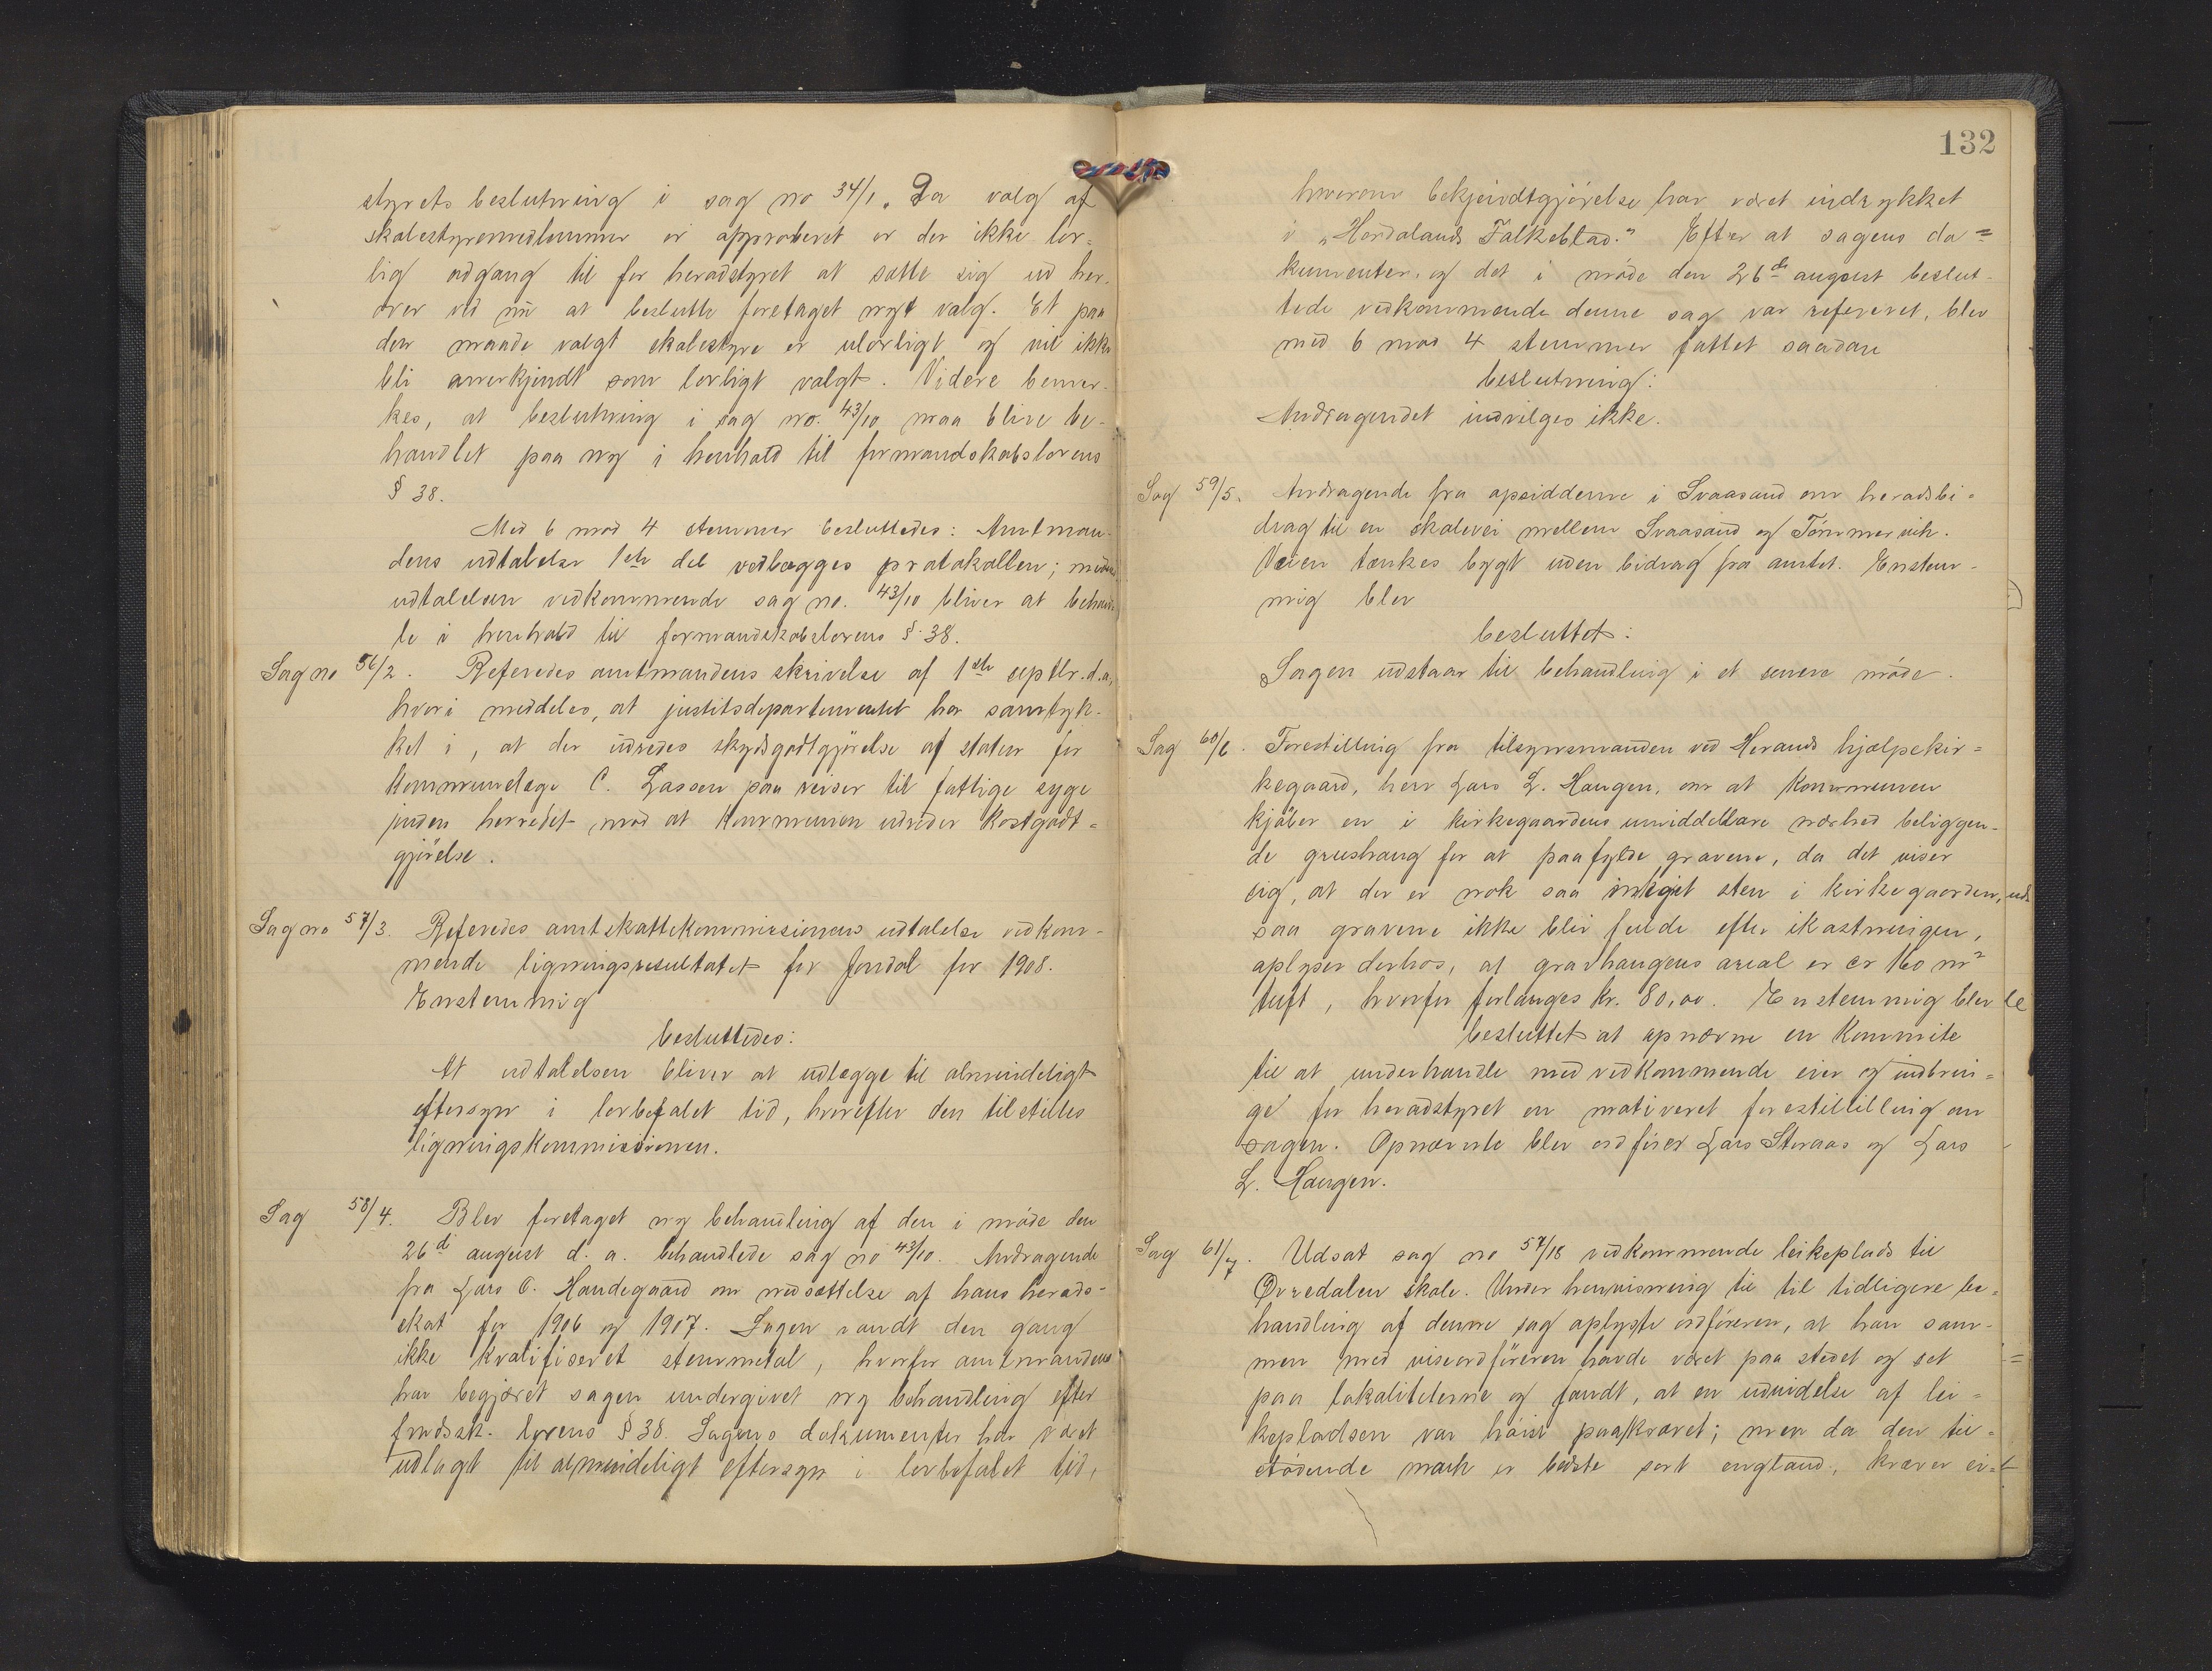 styrets beslutning i sag no 34/1. "Da valg af
skolestyremedlemmer er approberet er der ikke lov-
lig adgang til for heradstyret at sætte sig ud her-
over ved nu at beslutte foretaget nyt valg. Et paa
den maade valgt skolestyre er ulovligt og vil ikke
bli anerkjendt som lovligt valgt. Videre bemær-
kes, at beslutning i sag no. 43/10 maa blive be-
handlet paa ny i henhold til formandskabslovens
§ 38.
Med 6 mod 4 stemmer besluttedes: Amtman-
dens udtalelse 1ste del vedlægges protokollen; medens
udtalelsen vedkommende sag no. 43/10 bliver at behand-
le i henhold til formandskabslovens § 38.
Sag no 56/2. Referedes amtmandens skrivelse af 1ste septbr. d.a,
hvori meddeles, at justitsdepartementet har samtyk-
ket i, at der udredes skydsgodtgjörelse af staten for
kommunelæge C. Lassen paa reiser til fattige syge
inden herredet mod at kommunen udreder kostgodt-
gjörelse.
Sag no 57/3. Referedes amtskattekommissionens udtalelse vedkom-
mende ligningsresultatet for Jondal for 1908.
Enstemmig
besluttedes:
At udtalelsen bliver at udlægge til almindeligt
eftersyn i lovbefalet tid, hvorefter den tilstilles
ligningskommissionen.
Sag 58/4. Blev foretaget ny behandling af den i möde den
26de august d. a. behandlede sag no 43/10. Andragende
fra Lars O. Handegaard om nedsættelse af hans herads-
skat for 1906 og 1907. Sagen vandt den gang
ikke kvalifiseret stemmetal, hvorfor amtmanden
har begjæret sagen undergivet ny behandling efter
fmdssk. lovens § 38. Sagens dokumenter har været
udlagt til almindeligt eftersyn i lovbefalet tid,
132
hvorom bekjendtgjörelse har været indrykket
i "Hordalands Folkeblad." Efter at sagens do=
kumenter, og det i möde den 26de august beslut-
tede vedkommende denne sag var referert, blev
med 6 mod 4 stemmer fattet saadan
beslutning:
Andragendet indvilges ikke.
Sag 59/5. Andragende fra opsidderne i Svaasand om heradsbi-
drag til en skolevei mellem Svaasand og Tömmervik.
Veien tænkes bygt uden bidrag fra amtet. Enstem-
mig blev
besluttet:
Sagen udstaar til behandling i et senere möde.
Sag 60/6. Forestilling fra tilsynsmanden ved Herands hjælpekir=
kegaard, herr Lars L. Haugen, om at kommunen
kjöber en i kirkegaardens umiddelbare nærhed beliggen-
de grushaug for at paafylde gravene, da det viser
sig, at der er nok saa meget sten i kirkegaarden,
saa gravene ikke blir fulde efter ikastningen,
oplyser derhos, at gravhaugens areal er cr 160 m2
tuft, hvorfor forlanges kr. 80,00. Enstemmig blev
besluttet at opnævne en komite
til at underhandle med vedkommende eier og indbrin=
ge for heradstyret en motiveret forestillilling om
sagen. Opnævnte blev ordförer Lars Steraas og Lars
L. Haugen.
Sag 61/7. Udsat sag no 57/18 vedkommende leikeplads til
Övredalen skole. Under henvisning til til tidligere be-
handling af denne sag oplyste ordföreren, at han sam-
men med viseordföreren havde været paa stedet og set
paa lokaliteterne og fandt, at en udvidelse af lei=
kepladsen var höist paakrævet; men da den til=
stödende mark er bedste sort england, kræver ei=